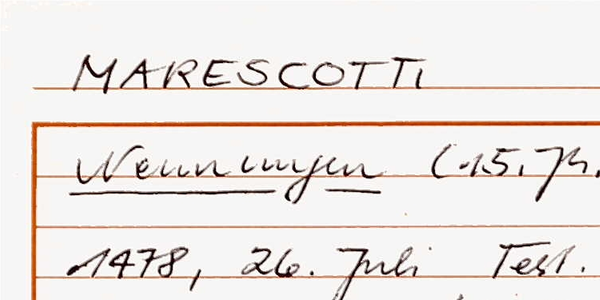 MARESCOTTI
Nennungen (15. Jh.
1478, 26. Juli Test.